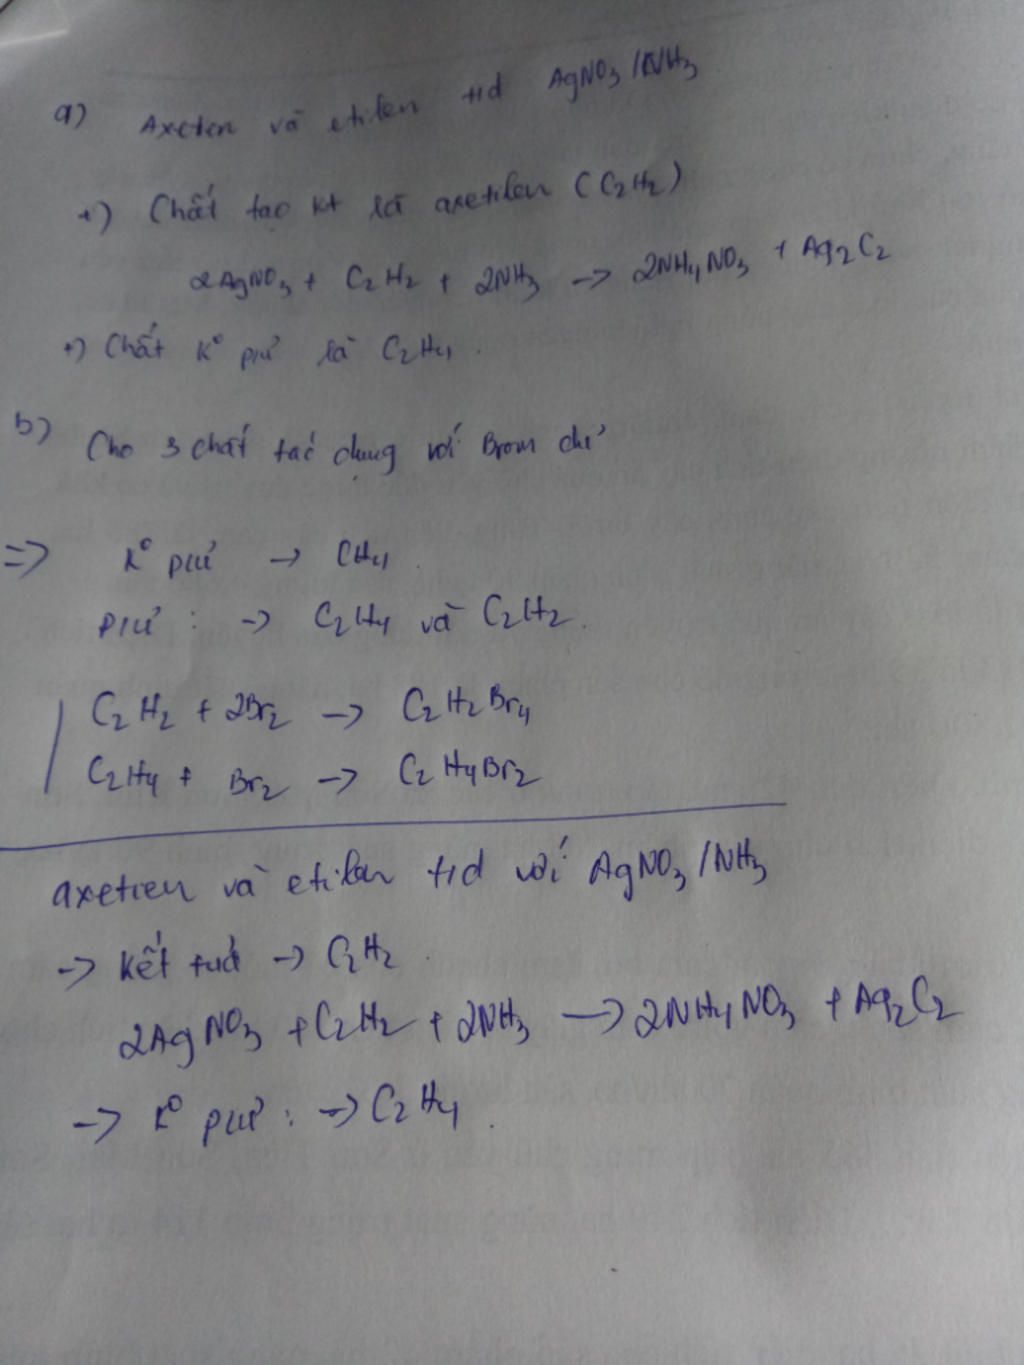 a) Axetien và etilen t/d AgNO3/NH3
+) Chất tạo kt là axetilen (C2H2)
2AgNO3 + C2H2 + 2NH3 -> 2NH4NO3 + Ag2C2
+) Chất K° pứ là C2H4.
b) Cho 3 chất tác dụng với Brom dư
=> K° pứ -> CH4.
pứ: -> C2H4 và C2H2.
C2H2 + 2Br2 -> C2H2Br4
C2H4 + Br2 -> C2H4Br2
axetien và etilen t/d với AgNO3/NH3
-> kết tuả -> C2H2.
2AgNO3 + C2H2 + 2NH3 -> 2NH4NO3 + Ag2C2
-> K° pứ: -> C2H4.